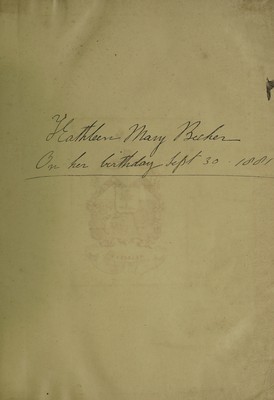 Kathleen Mary Becher
On her birthday Sept 30 1881